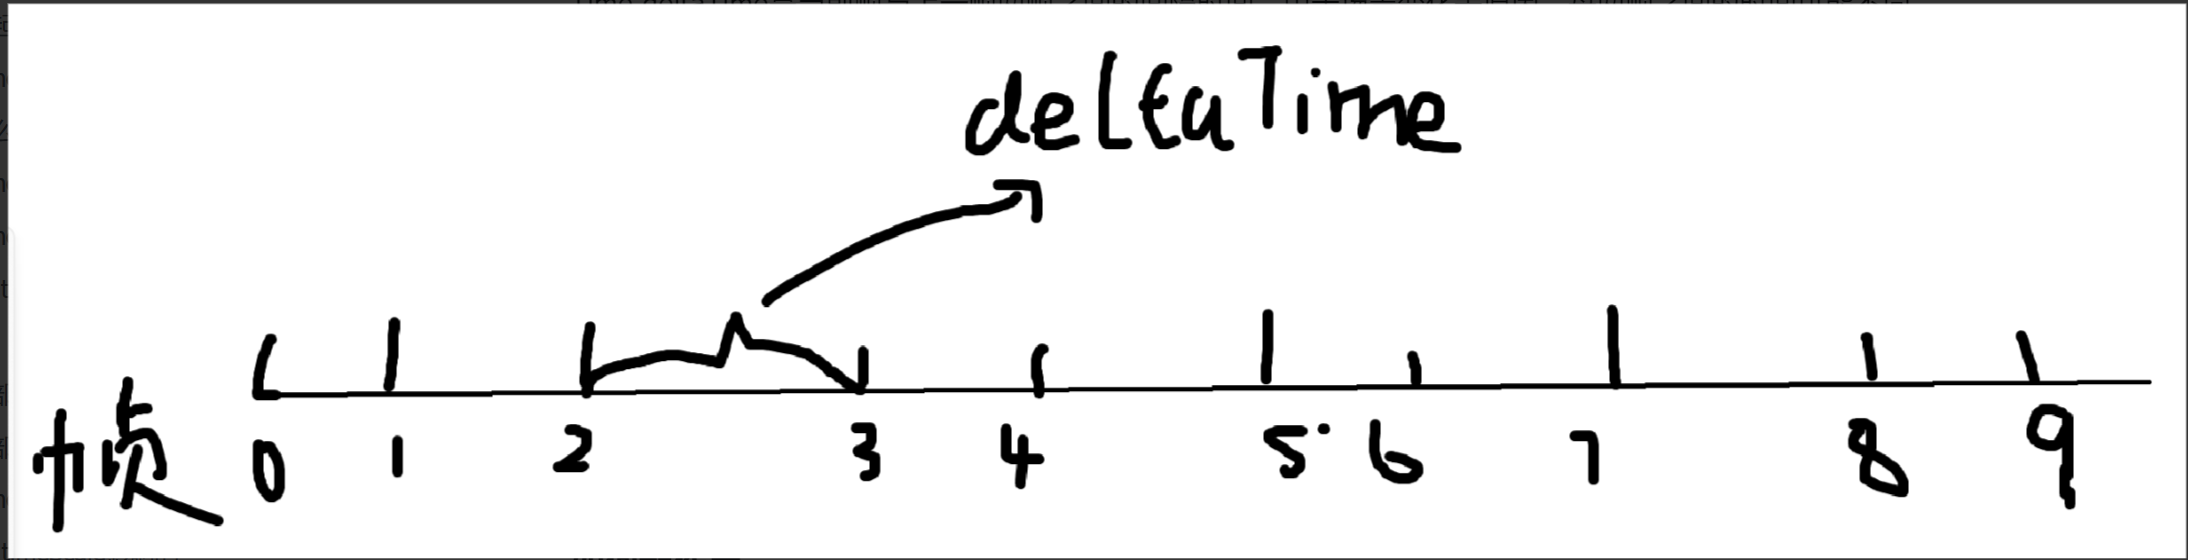 deltaTime
帧 0 1 2 3 4 5 6 7 8 9